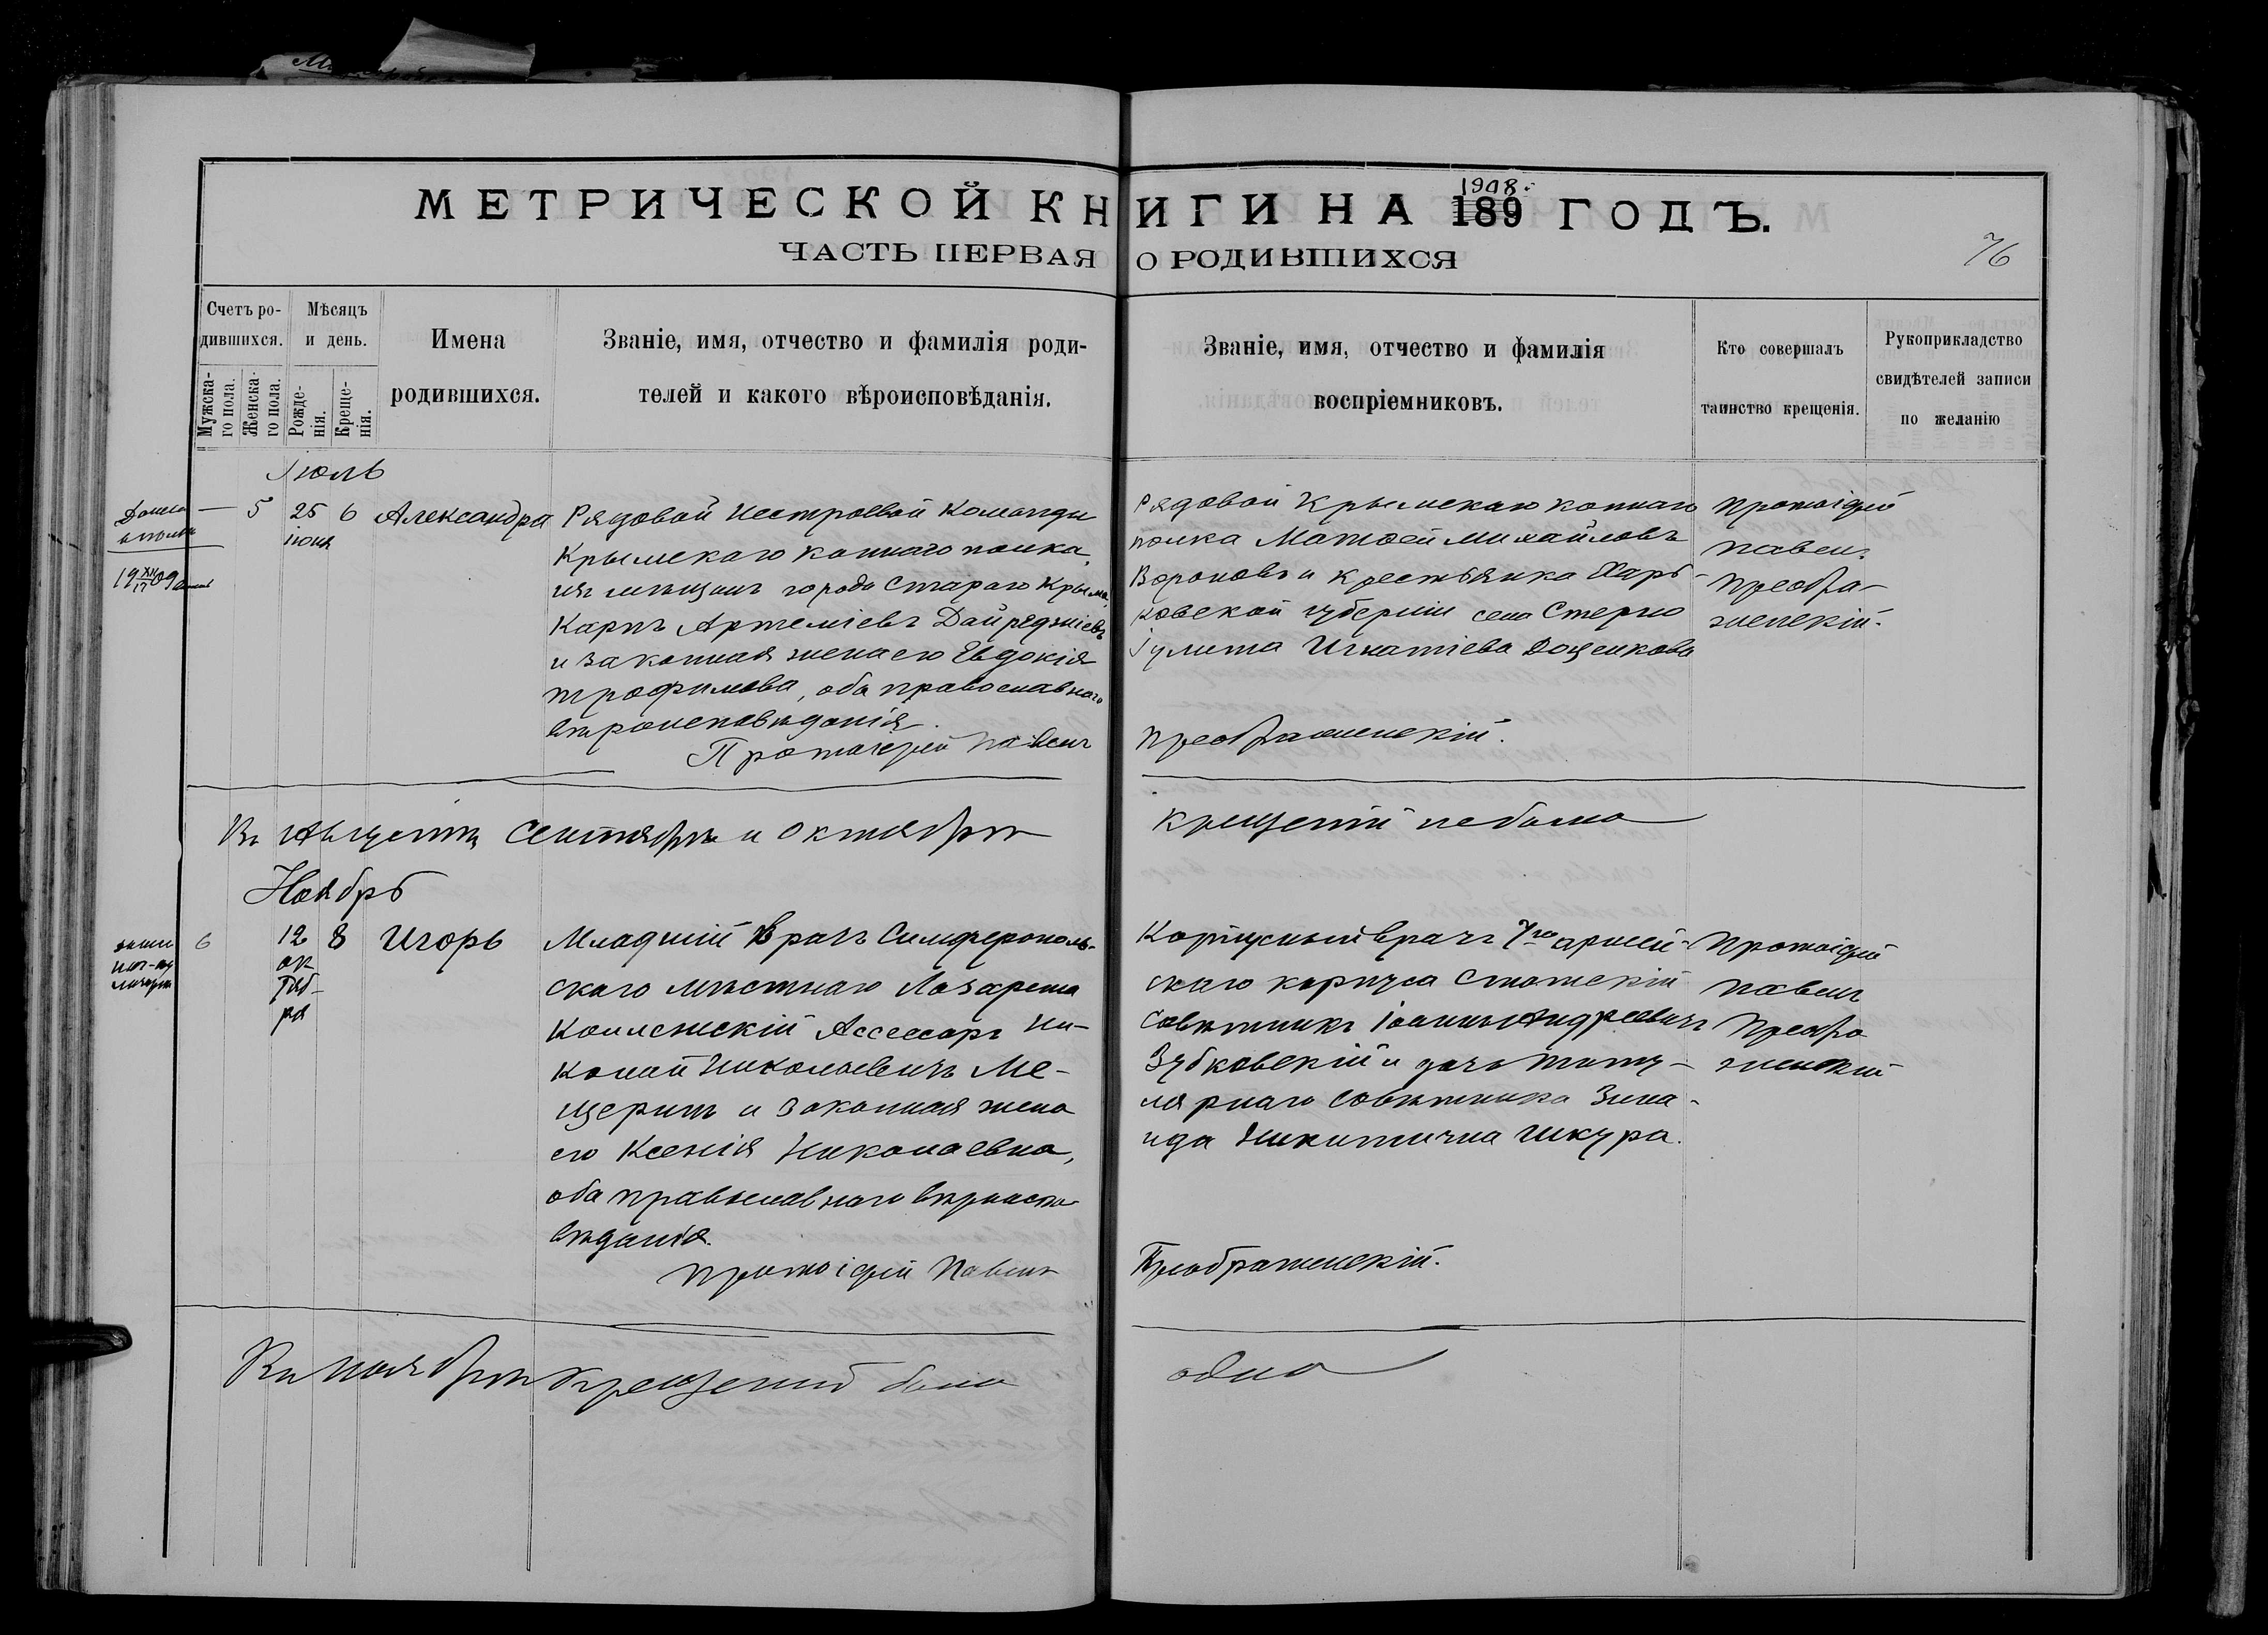 МЕТРИЧЕСКОЙ КНИГИ НА 189 ГОДЪ.
1908.
ЧАСТЬ ПЕРВАЯ О РОДИВШИХСЯ
76
Счетъ ро-
дившихся.
Мужска-
го пола.
Женска-
го пола.
Мѣсяцъ
и день.
Рожде-
нія.
Креще-
нія.
Имена
родившихся.
Званіе, имя, отчество и фамилія роди-
телей и какого вѣроисповѣданія.
Званіе, имя, отчество и фамилія
воспріемниковъ.
Кто совершалъ
таинство крещенія.
Рукоприкладство
свидѣтелей записи
по желанію
Іюль
— 5 25 6 Александра
іюня
Рядовой Нестроевой Команды
Крымскаго коннаго полка,
изъ мѣщанъ города Стараго Крыма,
Карпъ Артеміевъ
и законная жена его Евдокія
Трофимова, оба православнаго
вѣроисповѣданія.
Протоіерей Павелъ
Рядовой Крымскаго коннаго
полка Матѳей Михайловъ
Вороновъ и крестьянка Харь-
ковской губерніи села
Іулита Игнатіева Доценкова
Преображенскій.
Протоіерей
Павелъ
Преобра-
женскій.
Въ Августѣ, Сентябрѣ и Октябрѣ
крещеній не было
Ноябрь
6 12 8 Игорь
ок-
тяб-
ря
Младшій врачъ Симферополь-
скаго мѣстнаго Лазарета
Коллежскій Ассесоръ Ни-
колай Николаевичъ Ме-
щеринъ и законная жена
его Ксенія Николаевна,
оба православнаго вѣроиспо-
вѣданія.
Протоіерей Павелъ
Корпусный врачъ 7го армей-
скаго корпуса Статскій
Совѣтникъ Іоаннъ Андреевичъ
Зубковскій и дочь Титу-
лярнаго Совѣтника Зина-
ида Никитична Шкура.
Преображенскій.
Протоіерей
Павелъ
Преобра
женскій
Въ ноябрѣ крещеній было
одно